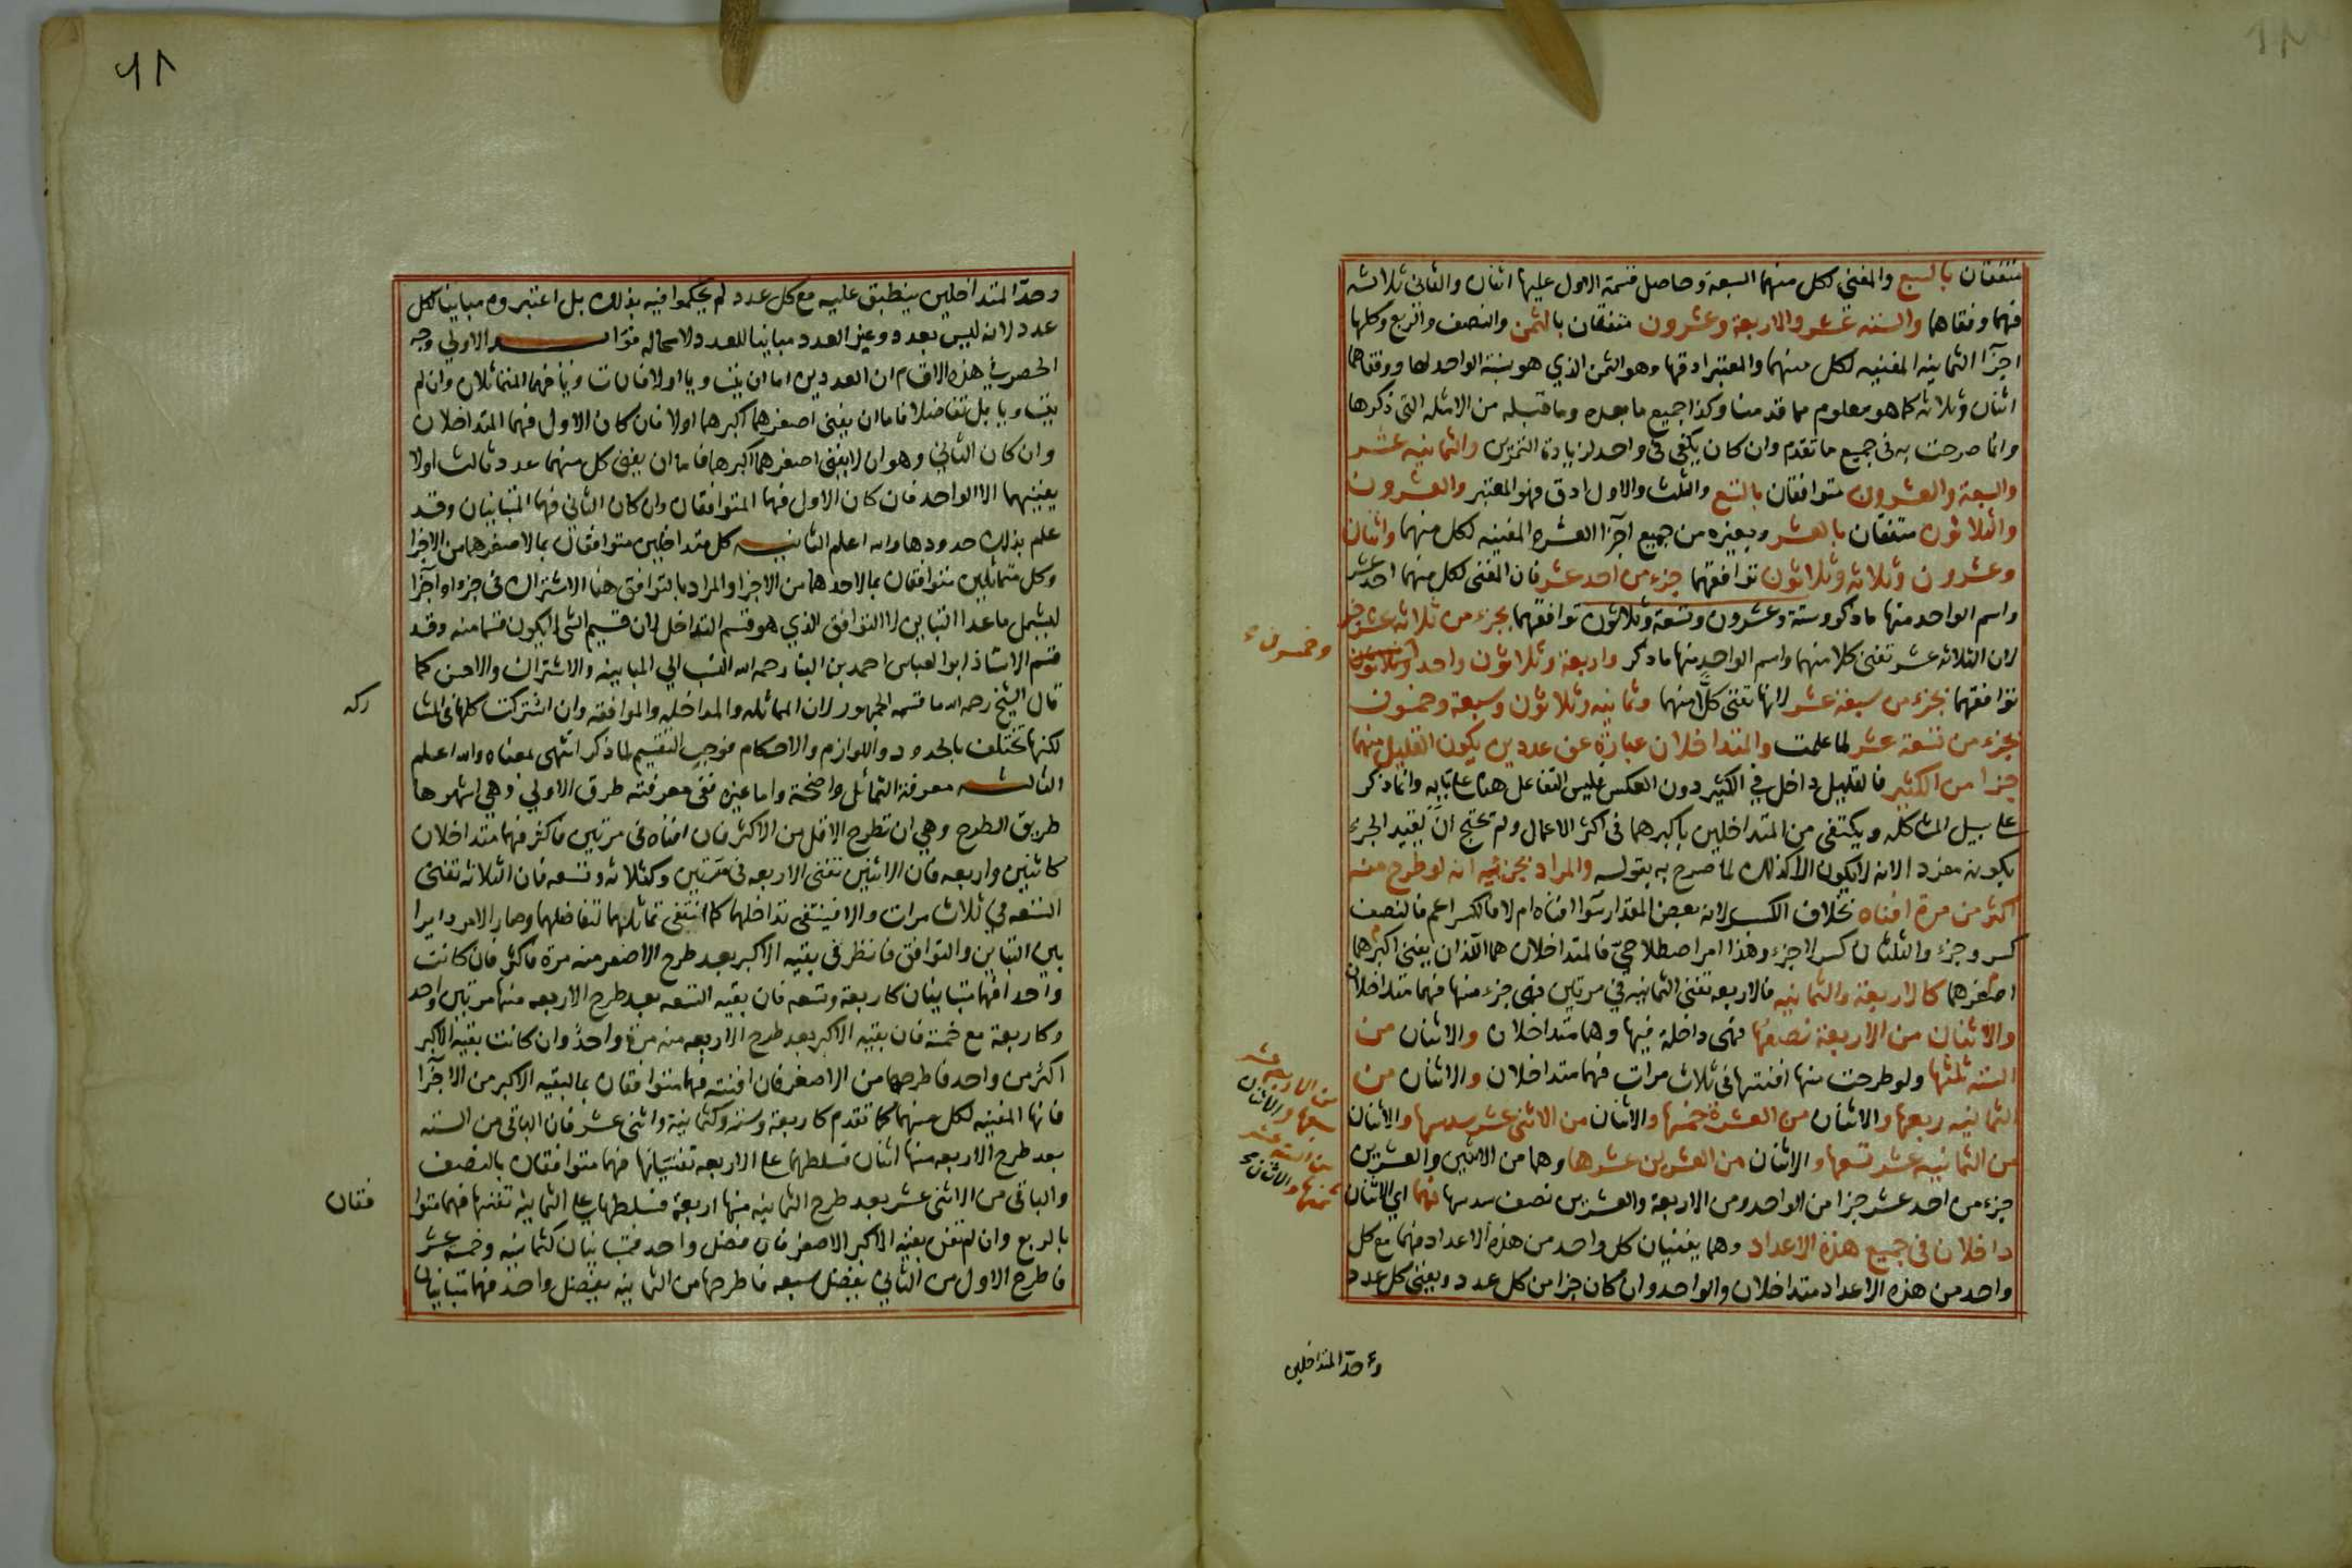 متفقتان بالسبع والمفنى لكل منهما السبعة وحاصل قسمة الاول عليها اثنان والثانى ثلاثه
فهما وفقاهما والسته عشر والاربعة وعشرون متفقان بالثمن والنصف والربع وكلها
اجزآ الثمانيه المفنيه لكل منهما والمعتبر ادقها وهو الثمن الذي هو نسبة الواحد لها ووفقاهما
اثنان وثلاثه كما هو معلوم مما قدمنا وكذا جميع ما بعده وما قبله من الامثله التى ذكرها
وانما صرحت به فى جميع ما تقدم وان كان يكفى فى واحد لزيادة التمرين والثمانيه عشر
والسبعة والعشرون متوافقان بالتسع والثلث والاول ادق فهو المعتبر والعشرون
والثلاثون متفقان بالعشر وبغيره من جميع اجزآ العشره المفنيه لكل منهما واثنان
وعشرون وثلاثه وثلاثون توافقهما جزء من احد عشر فان المفنى لكل منهما احد عشر
واسم الواحد منها ما ذكر وستة وعشرون وتسعة وثلاثون توافقهما بجزء من ثلاثه عشر
لان الثلاثه عشر تفنى كلا منهما واسم الواحد منها ما ذكر واربعة وثلاثون واحد
وخمسون
توافقهما بجزء من سبعة عشر لانها تفنى كلًّا منهما وثمانيه وثلاثون وسبعة وخمسون
بجزء من تسعة عشر لما علمت والمتداخلان عبارة عن عددين يكون القليل منهما
جزا من الكثير فالقليل داخل في الكثير دون العكس فليس التفاعل هنا على بابه وانما ذكر
على سبيل المشاكله ويكتفى من المتداخلين باكبرهما فى اكثر الاعمال ولم يحتج ان يقيد الجزء
بكونه مفردا لانه لا يكون الا كذلك لما صرح به بقوله والمراد بجزئيه انه لو طرح منه
اكثر من مرة افناه بخلاف الكسر لانه بعض المقدار سوآ افناه ام لا فالكسر اعم فالنصف
كسر وجزء والثلثان كسر لا جزء وهذا امر اصطلاحيّ فالمتداخلان هما اللذان يفنى اكبرهما
اصغرهما كالاربعة والثمانيه فالاربعه تفنى الثمانيه في مرتين فهى جزء منها فهما متداخلان
والاثنان من الاربعة نصفها فهى داخلة فيها وهما متداخلان والاثنان من
السته ثلثها ولو طرحت منها افنتها فى ثلاث مرات فهما متداخلان والاثنان من
الثمانيه ربعها والاثنان من العشرة خمسها والاثنان من الاثنى عشر سدسها والاثنان
من الاربعة عشر
سبعها والاثنان
من الستة عشر
ثمنها والاثنان
من الثمانيه عشر تسعها والاثنان من العشرين عشرها وهما من الاثنين والعشرين
جزء من احد عشر جزا من الواحد ومن الاربعة والعشرين نصف سدسها فهما اي الاثنان
داخلان فى جميع هذه الاعداد وهما يفنيان كل واحد من هذه الاعداد فهما مع كل
واحد من هذه الاعداد متداخلان والواحد وان كان جزا من كل عدد ويفنى كل عدد
وحدّ المتداخلين
٦١
وحدّ المتداخلين ينطبق عليه مع كل عدد لم يحكموا فيه بذلك بل اعتبروه مباينا لكل
عدد لانه ليس بعدد وغير العدد مباينا للعدد لا محاله الاولى وجه
الحصر في هذه الاقسام ان العددين اما ان يتساويا اولا فان تساويا فهما المتماثلان وان لم
يتساويا بل تفاضلا فاما ان يفنى اصغرهما اكبرهما اولا فان كان الاول فهما المتداخلان
وان كان الثاني وهو ان لا يفنى اصغرهما اكبرهما فاما ان يفنى كل منهما عدد ثالث اولا
يفنيهما الا الواحد فان كان الاول فهما المتوافقان وان كان الثانى فهما المتباينان وقد
علم بذلك حدودها والله اعلم الثانيه كل متداخلين متوافقان بما لاصغرهما من الاجزا
وكل متماثلين متوافقان بما لاحدهما من الاجزا والمراد بالتوافق هنا الاشتراك فى جزء او اجزآ
ليشمل ما عدا التباين لا التوافق الذي هو قسم التداخل لان قسيم الشئ لا يكون قسما منه وقد
قسم الاستاذ ابو العباس احمد بن البنا رحمه الله النسب الي المباينه والاشتراك والاحسن كما
قال الشيخ رحمه الله ما قسمه الجمهور لان المماثله والمداخله والموافقه وان اشتركت كلها فى المشا
ركه
لكنها تختلف بالحدود واللوازم والاحكام فوجب التقسيم لما ذكر انتهى بمعناه والله اعلم
الثالثه معرفة التماثل واضحة واما غيره ففى معرفته طرق الاولي وهي اشهرها
طريق الطرح وهي ان تطرح الاقل من الاكثر فان افناه فى مرتين فاكثر فهما متداخلان
كاثنين واربعه فان الاثنين تفنى الاربعه فى مرتين وكثلاثه وتسعه فان الثلاثه تفنى
التسعه في ثلاث مرات والا فينتفى تداخلهما كما انتفى تماثلهما لتفاضلهما وصار الامر دايرا
بين التباين والتوافق فانظر فى بقيه الاكبر بعد طرح الاصغر منه مرة فاكثر فان كانت
واحدا فهما متباينان كاربعة وتسعه فان بقيه التسعه بعد طرح الاربعه منها مرتين واحد
وكاربعة مع خمسة فان بقيه الاكبر بعد طرح الاربعه منه مرة واحدٌ وان كانت بقيه الاكبر
اكثر من واحد فاطرحها من الاصغر فان افنته فهما متوافقان بما لبقيه الاكبر من الاجزآ
فانها المفنيه لكل منهما كما تقدم كاربعة وستة وكثمانية واثنى عشر فان الباقى من السته
بعد طرح الاربعه منها اثنان فسلطهما على الاربعه تفنيانها فهما متوافقان بالنصف
والباقى من الاثنى عشر بعد طرح الثمانيه منها اربعة فسلطها على الثمانيه تفنها فهما متوا
فقان
بالربع وان لم تفن بقيه الاكبر الاصغر فان فضل واحد فمتباينان كثمانيه وخمسه عشر
فاطرح الاول من الثاني يفضل سبعه فاطرحها من الثمانيه يفضل واحد فهما متباينان